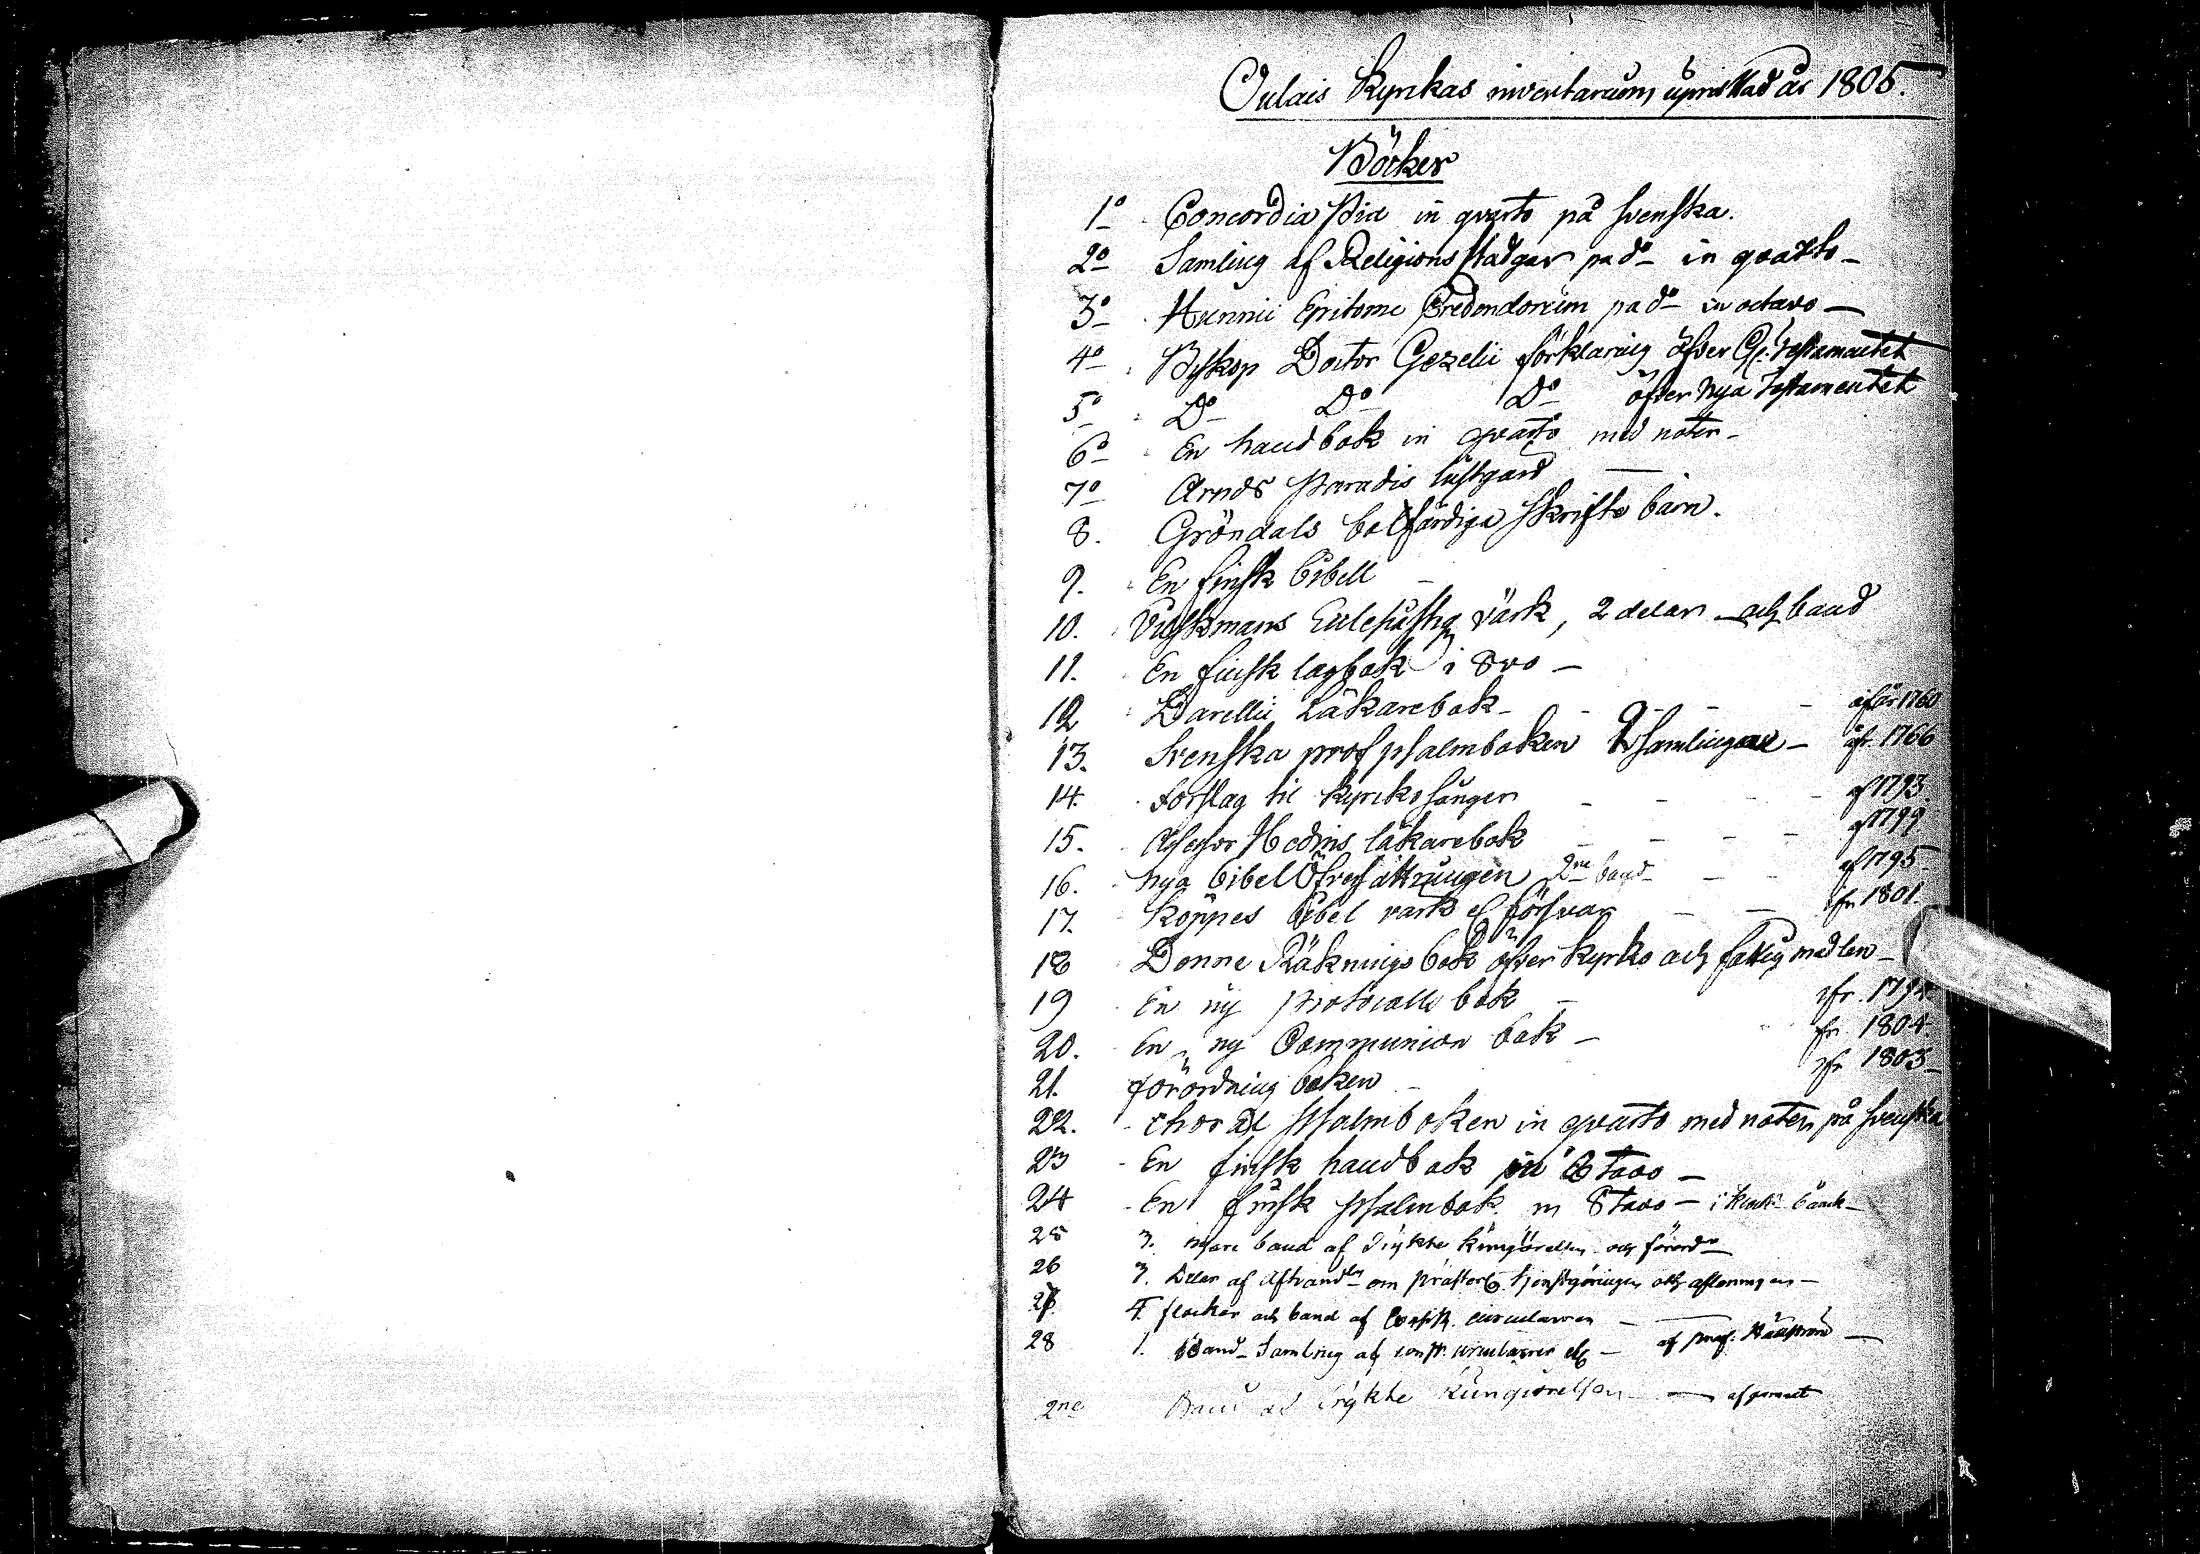 Oulais Kyrkas inventarium uprättad år 1805.
Böcker
1o Concordia Pia in qvarto på svenska.
2o Samling af Religions stadgar på do in qvarto
3o Hunnii Epitome Credendorum på do in octavo
4o Biskop Doctor Gezelii förklaring öfver G: Testamentet
5o Do Do Do öfver Nya Testamentet
6o En handbok in qvarto med noter
7o Arnds Paradis lustgård
8. Gröndals botfärdiga skrifte barn.
9. En finsk bibell
10. värk, 2 delar och band
11. En finsk lagbok i 8vo
12 Darellii Läkarebok af år 1760
13. Svenska prof psalmboken 2 samlingar af 1766
14. Förslag til kyrko sånger af 1793
15. Assessor Hedins läkarebok af 1799
16. Nya bibel Öfversättningen 2ne band af 1795
17. Köppes bibel värk försvar ifr 1801.
18 Denne Räknings bok öfver kyrko och fattig medlen
19 En ny Protocolls bok ifr. 179
20. En ny Communion bok ifr 1804
21. förordning boken ifr 1803
22. choral Psalmboken in qvarto med noter på svenska
23 En finsk handbok in 8tavo
24 En finsk psalmbok in 8tavo i bänk
25 3. nyare band af trykte kungörelser och förordn
26 3. Delar af Afhandl om prästerl. tjenstgöringen och aflöningen
27. 4 flockar och band af Consist. circulairen
28 1. Band Samling af const. circulairer af
2ne Band af trykte kungiörelser